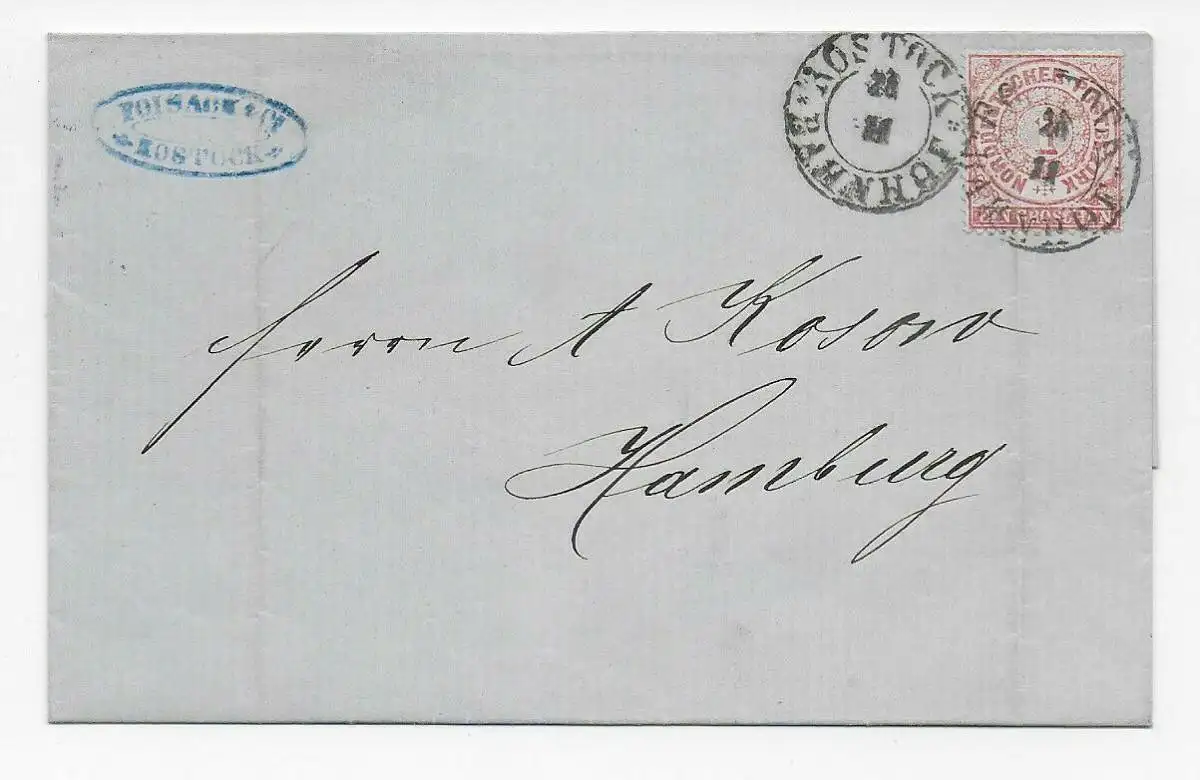 & Co
ROSTOCK
ROSTOCK. BAHNHOF
NORDDEUTSCHER POSTBEZIRK
1
Herrn A Kosow
Hamburg